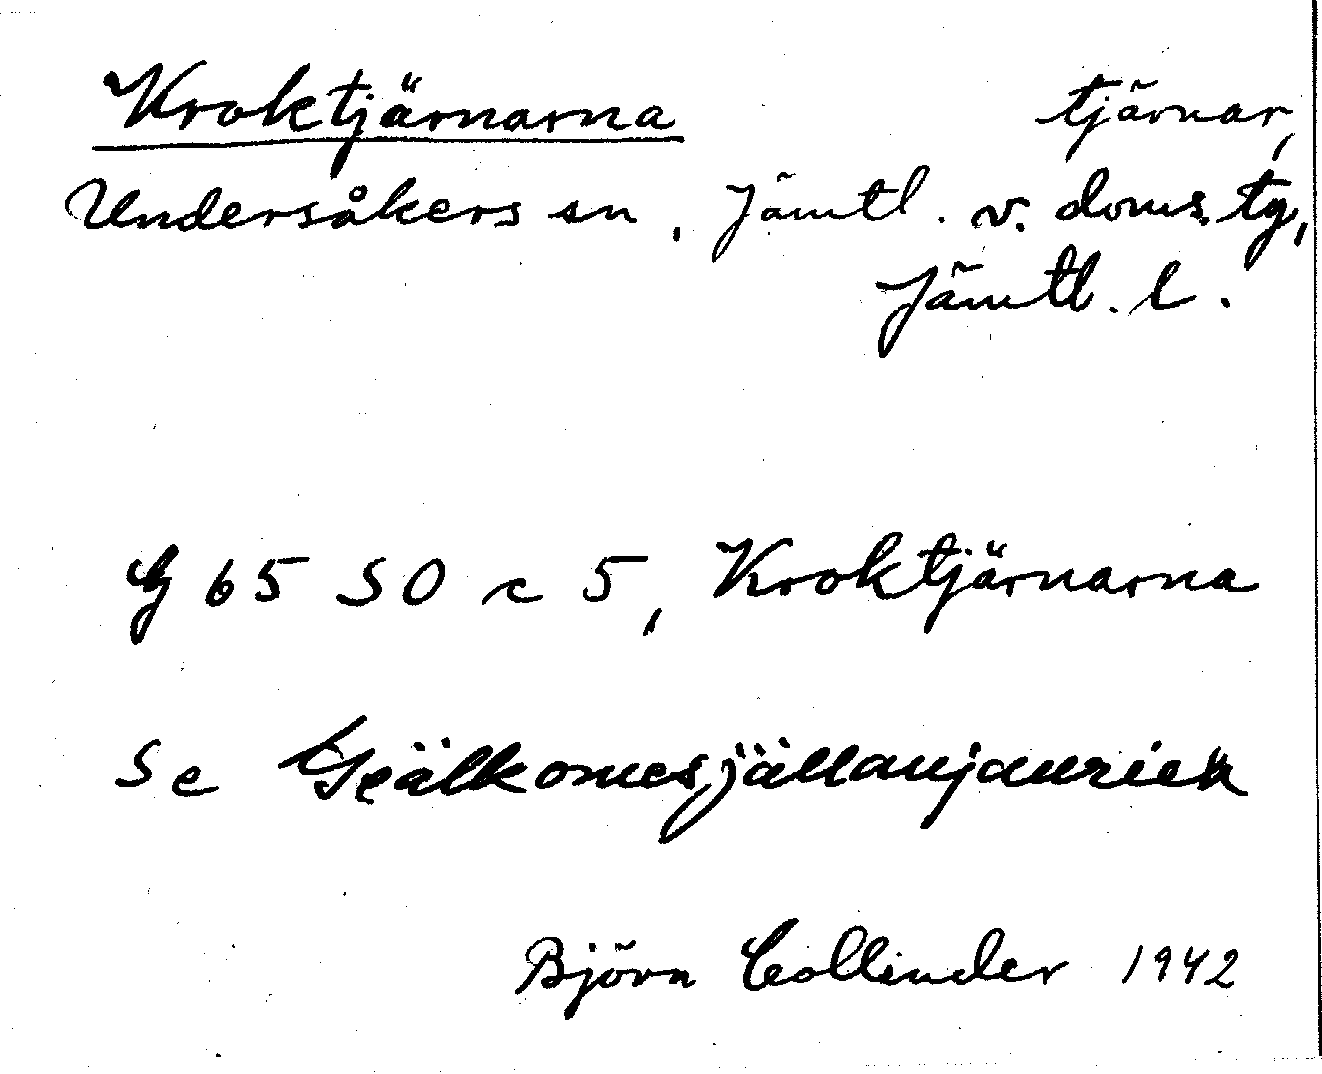 Kroktjärnarna tjärnar,
Undersåkers sn, Jämtl. v. doms. tg,
Jämtl. l.
G 65 SO c 5, Kroktjärnarna
Se
Björn Collinder 1942